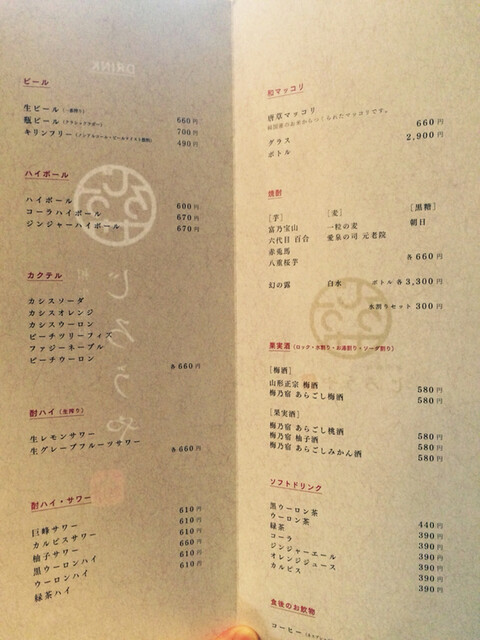 DRINK
ビール
生ビール(一番搾り)
660円
瓶ビール(クラシックラガー)
700円
キリンフリー(ノンアルコール・ビールテイスト飲料)
490円
ハイボール
ハイボール 600円
コーラハイボール 670円
ジンジャーハイボール 670円
カクテル
カシスソーダ
カシスオレンジ
カシスウーロン
ピーチツリーフィズ
ファジーネーブル
ピーチウーロン
各660円
酎ハイ(生搾り)
生レモンサワー
生グレープフルーツサワー 各660円
酎ハイ・サワー
巨峰サワー 610円
カルピスサワー 610円
柚子サワー 610円
黒ウーロンハイ 660円
ウーロンハイ 610円
緑茶ハイ 610円
じろうや
和マッコリ
唐草マッコリ
グラス 660円
ボトル 2,900円
焼酎
[芋] [麦] [黒糖]
富乃宝山 一粒の麦 朝日
六代目 百合 愛泉の司 元老院
赤兎馬
八重桜芋 各660円
幻の露 白水 ボトル各3,300円
水割りセット 300円
果実酒(ロック・水割り・お湯割り・ソーダ割り)
[梅酒]
山形正宗 梅酒 580円
梅乃宿 あらごし梅酒 580円
[果実酒]
梅乃宿 あらごし桃酒 580円
梅乃宿 柚子酒 580円
梅乃宿 あらごしみかん酒 580円
ソフトドリンク
黒ウーロン茶 440円
ウーロン茶 390円
緑茶 390円
コーラ 390円
ジンジャーエール 390円
オレンジジュース 390円
カルピス 390円
食後のお飲物
コーヒー